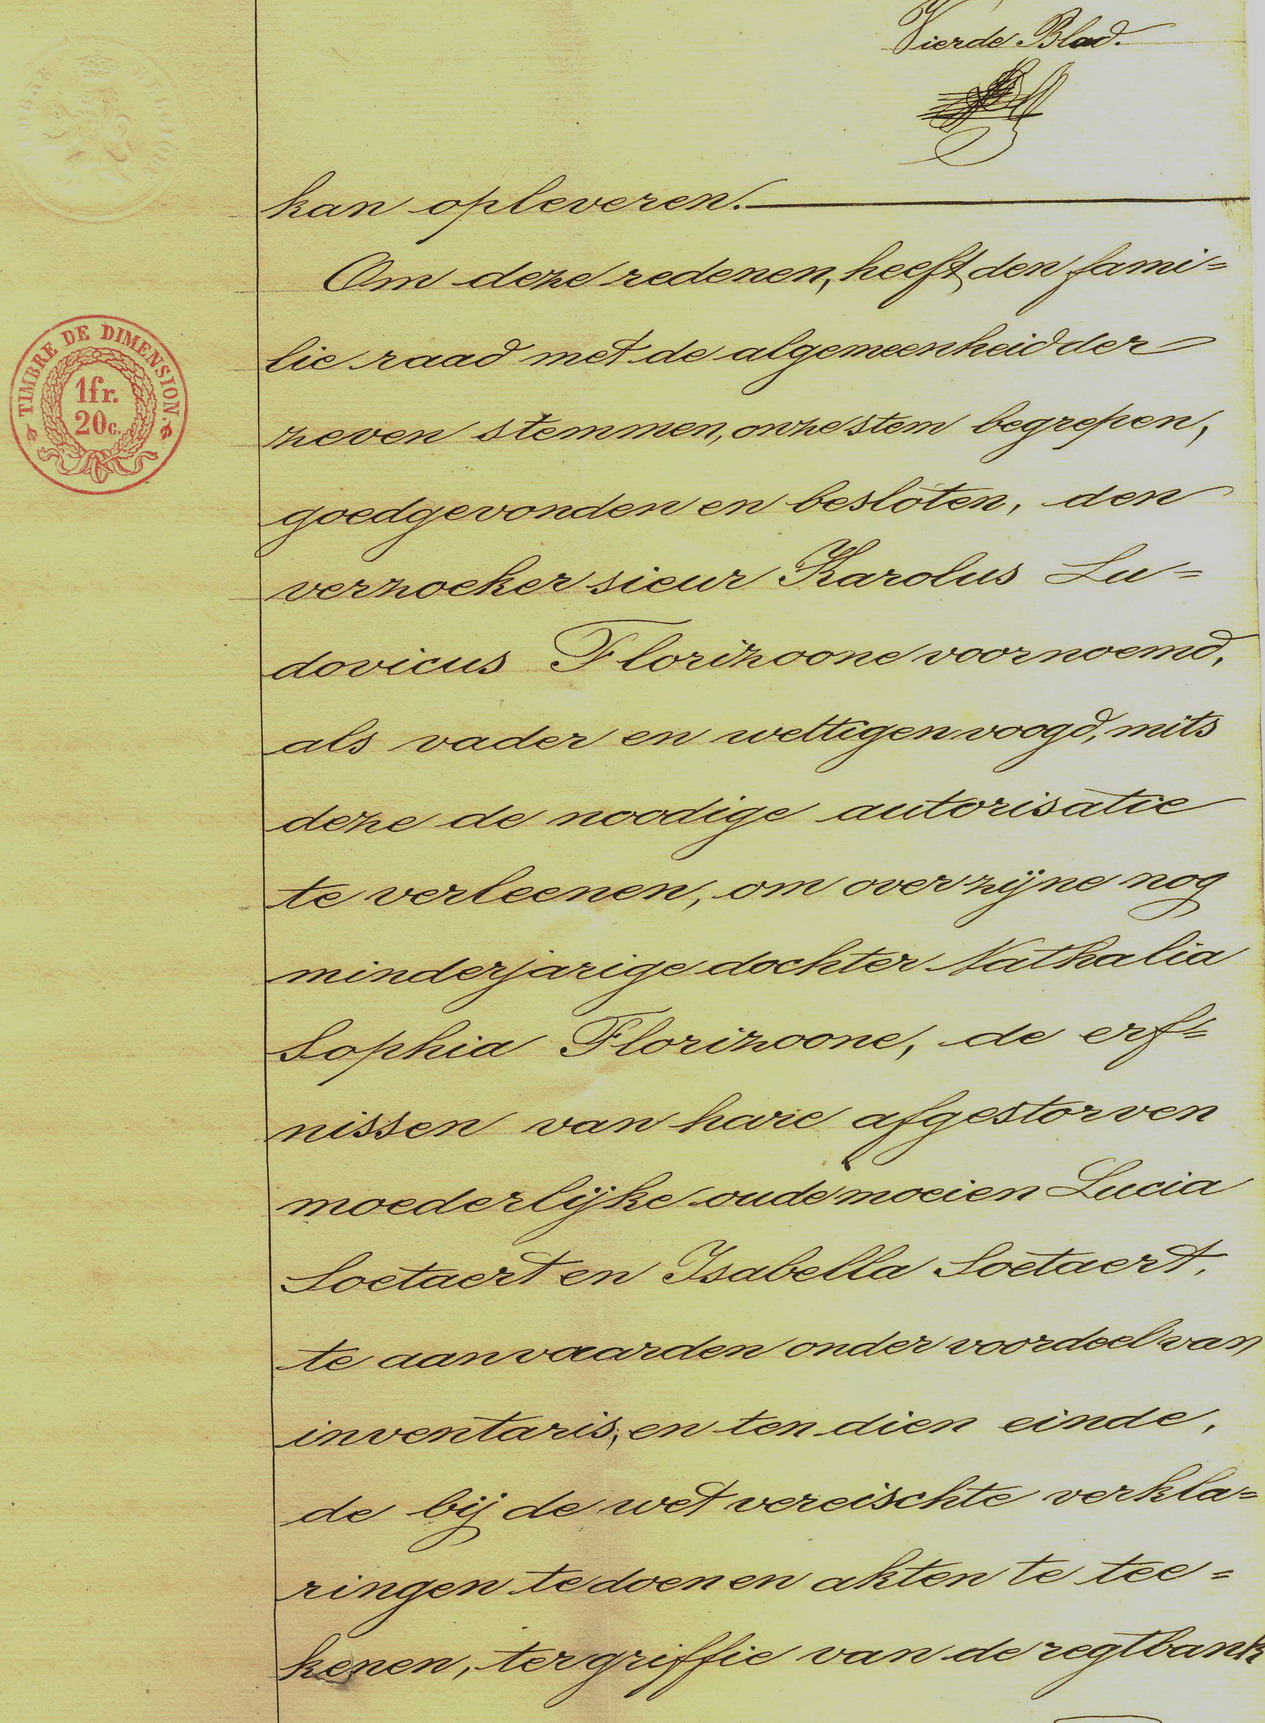 Vierde Blad.
TIMBRE BELGIQUE
kan opleveren.
Om deze redenen, heeft den fami=
TIMBRE DE DIMENSION.
1fr.
20c.
lie raad met de algemeenheid der
zeven stemmen, onze stem begrepen,
goedgevonden en besloten, den
verzoeker sieur Karolus Lu=
dovicus Florizoone voornoemd,
als vader en wettigen voogd, mits
deze de noodige autorisatie
te verleenen, om over zijne nog
minderjarige dochter Nathalia
Sophia Florizoone, de erf=
nissen van hare afgestorven
moederlijke oude moeien Lucia
Soetaert en Isabella Soetaert,
te aanvaarden onder voordeel van
inventaris, en ten dien einde,
de bij de wet vereischte verkla=
ringen te doen en akten te tee=
kenen, ter griffie van de regtbank